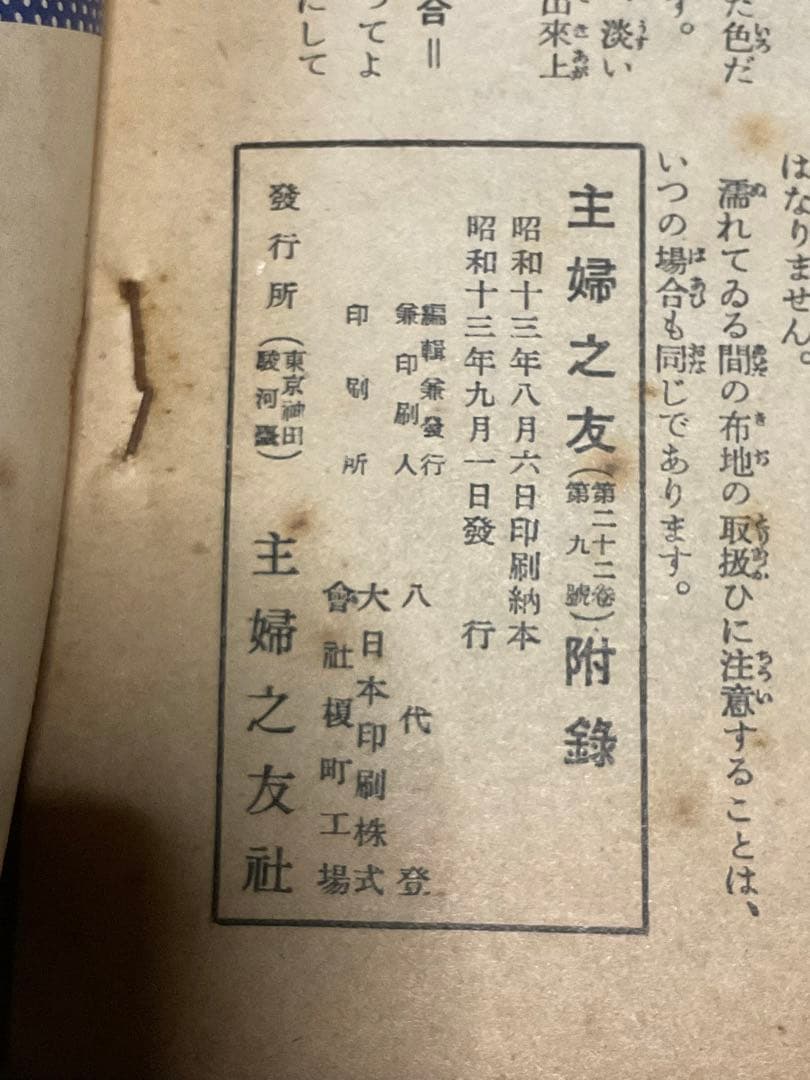 た色だ
す。
淡い
出來上
合＝
つてよ
にして
はなりません。
濡れてゐる間の布地の取扱ひに注意することは、
いつの場合も同じであります。
主婦之友（第二十二卷第九號）附錄
昭和十三年八月六日印刷納本
昭和十三年九月一日發行
編輯兼發行
兼印刷人
八代登
印刷所
大日本印刷株式
會社榎町工場
發行所（東京神田駿河臺）主婦之友社